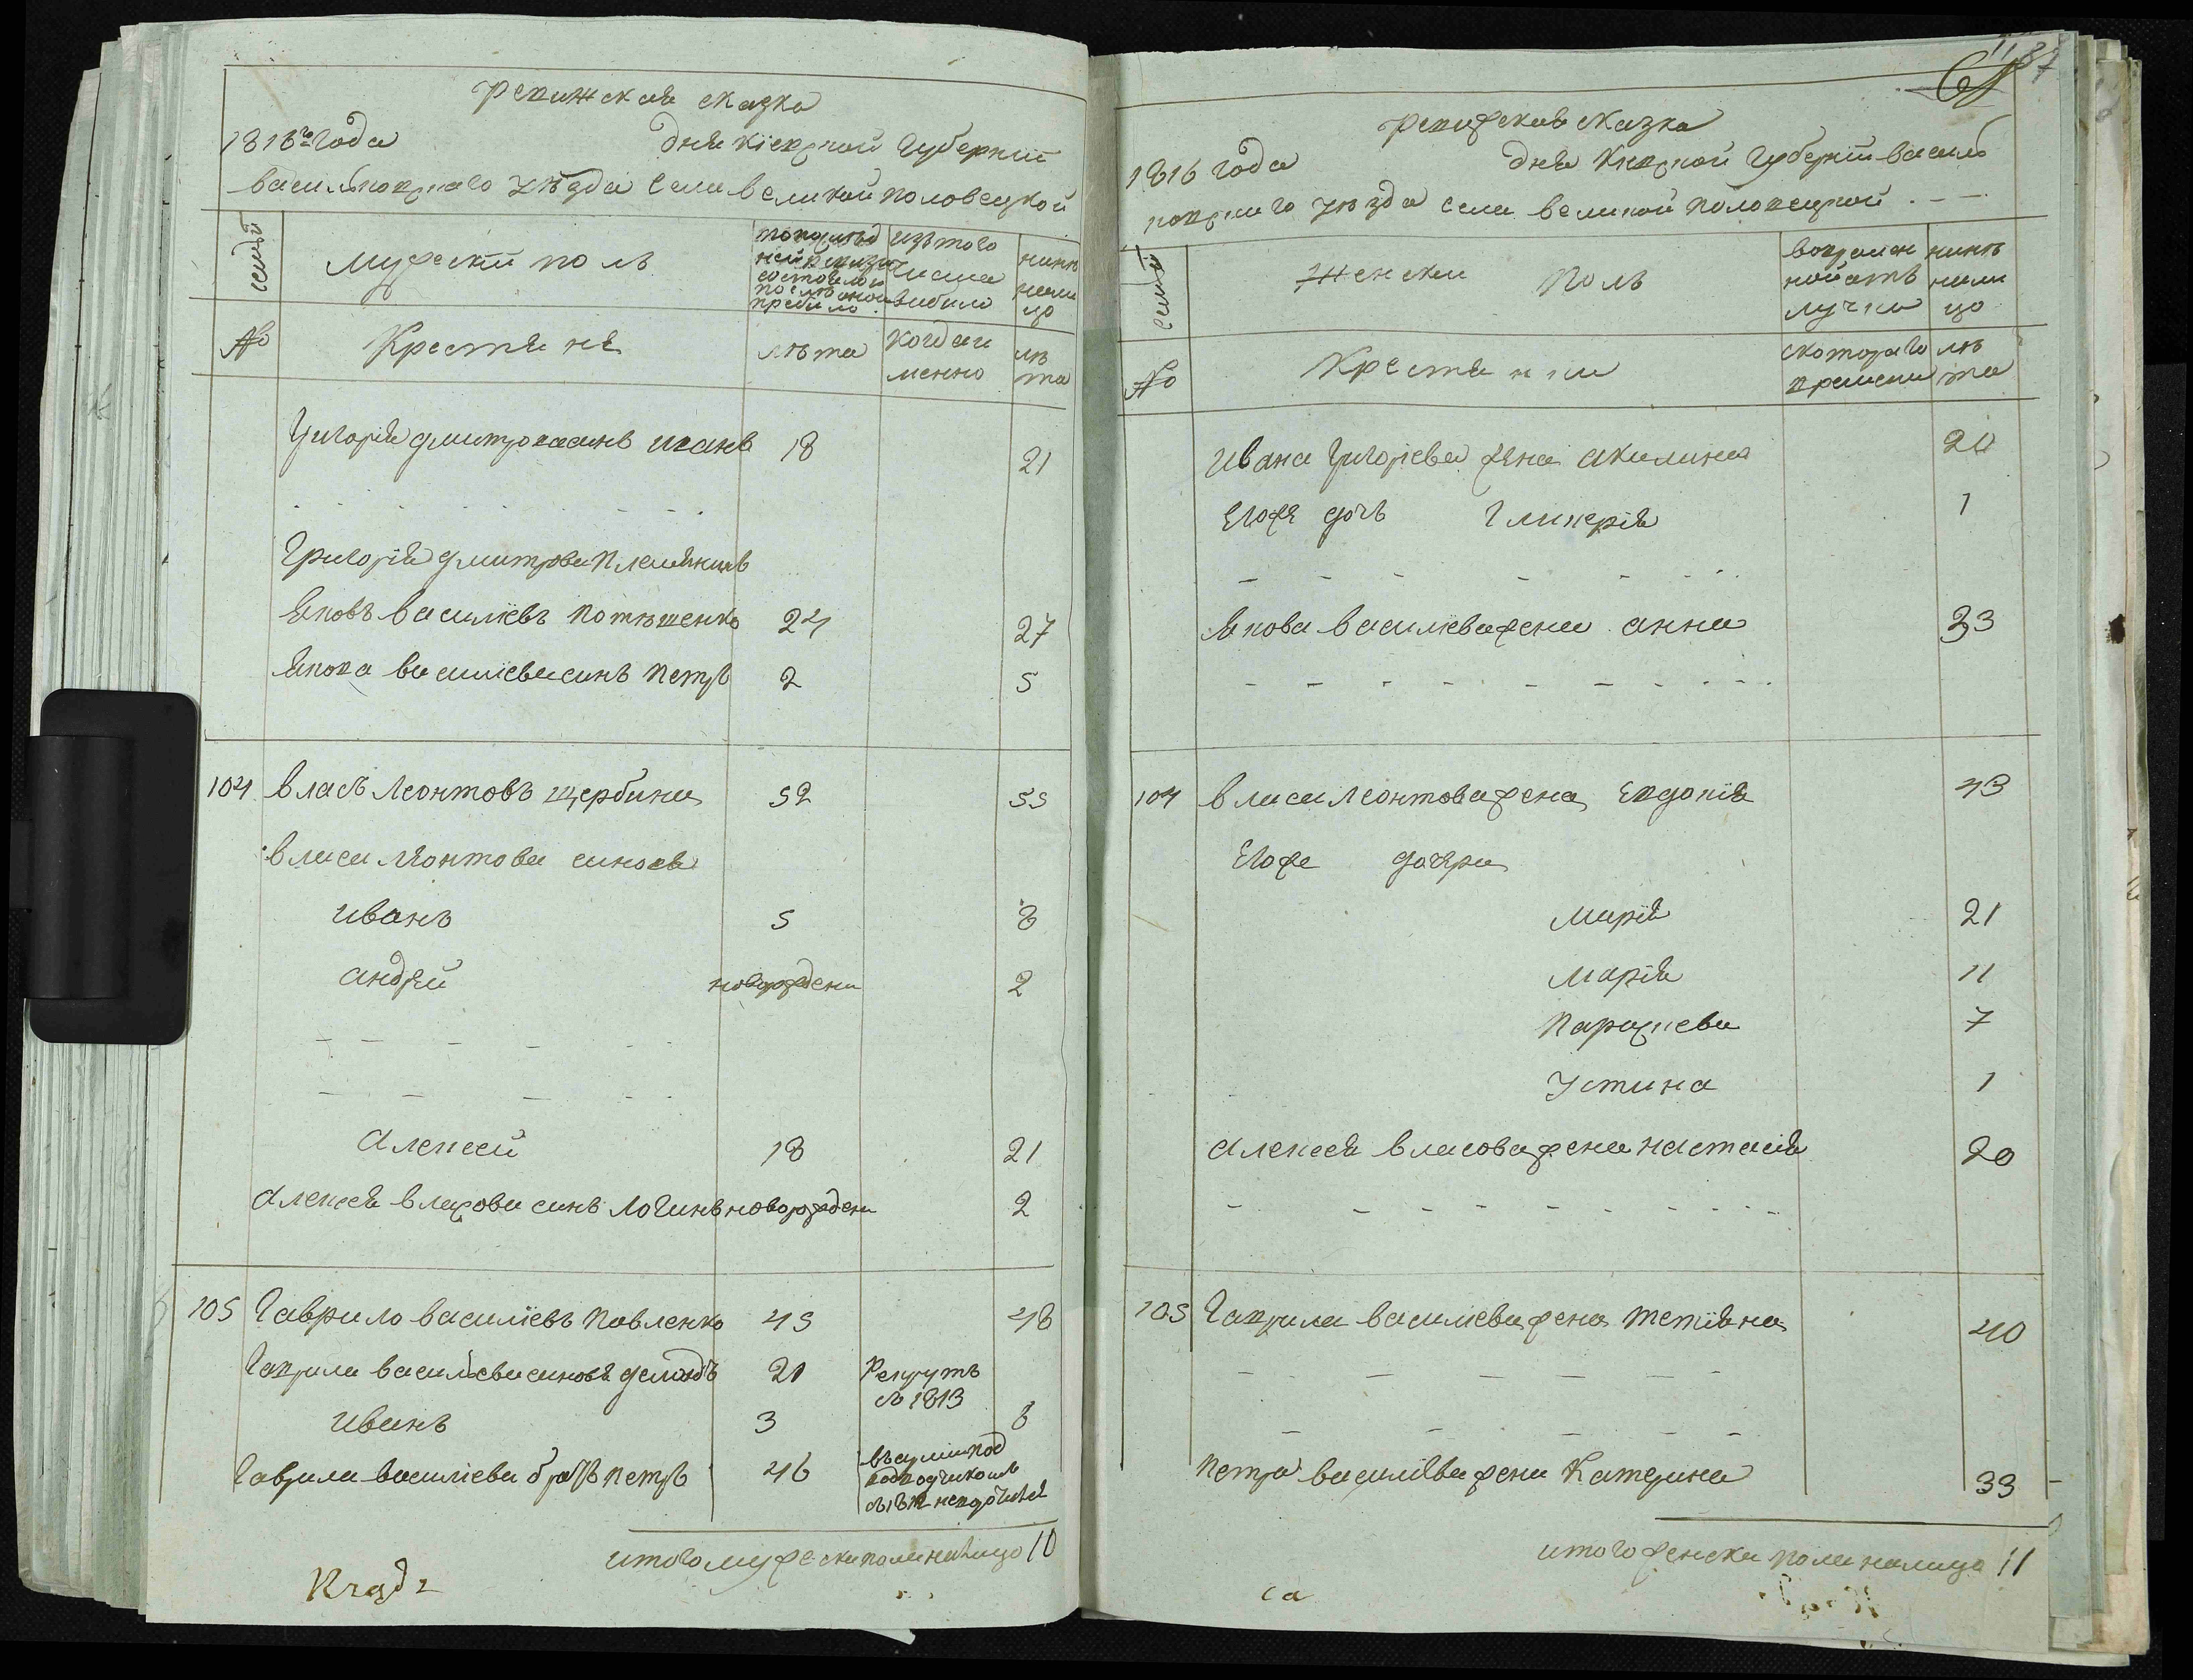 ревижская сказка
1816го года дня кiевской Губернiи
васильковскаго уѣзда села великой половецкой
семьи
мужескiй полъ
по послѣд
ней ревизiи
состояло и
послѣ оной
прибыло
изъ того
числа
выбыло
нинѣ
нали
цо
№
Крестяне
лѣта
когда и
менно
лѣ
та
Григорiя дмитрова синъ иванъ 18 21
Григорiя дмитрова племянникъ
Яковъ василiевъ потѣшенко 24 27
Якова василiева синъ петръ 2 5
104 власъ леонтовъ щербина 52 55
власа леонтова синовя
иванъ 5 8
андрей новорожден 2
Алексей 18 21
Алексея власова синъ логинъ новорожден 2
105 Гаврило василiевъ павленко 45 48
Гаврила василiева синовя 21 Рекрутъ
въ 1813
иванъ 3 8
Гаврила василiева братъ петръ 46
итого мужеска пола налицо 10
ревижская сказка
1816 года дня Киевской Губернiи василь
ковскаго уѣзда села великой половецкой
семьи
женски полъ
во времен
ной отъ
лучки
нинѣ
нали
цо
№
Крестянки
с котораго
времени
лѣ
та
ивана григорiева жена акилина 20
Егоже дочь Гликерiя 1
Якова василiева жена анна 33
104 власа леонтова жена Евдокiя 43
Егоже дочери
Марiя 21
Марiя 11
Параскева 7
Устина 1
Алексея власова жена настасiя 20
105 Гаврила василiева жена тетiяна 40
петра василiева жена Катерина 33
итого женска пола налицо 11
са